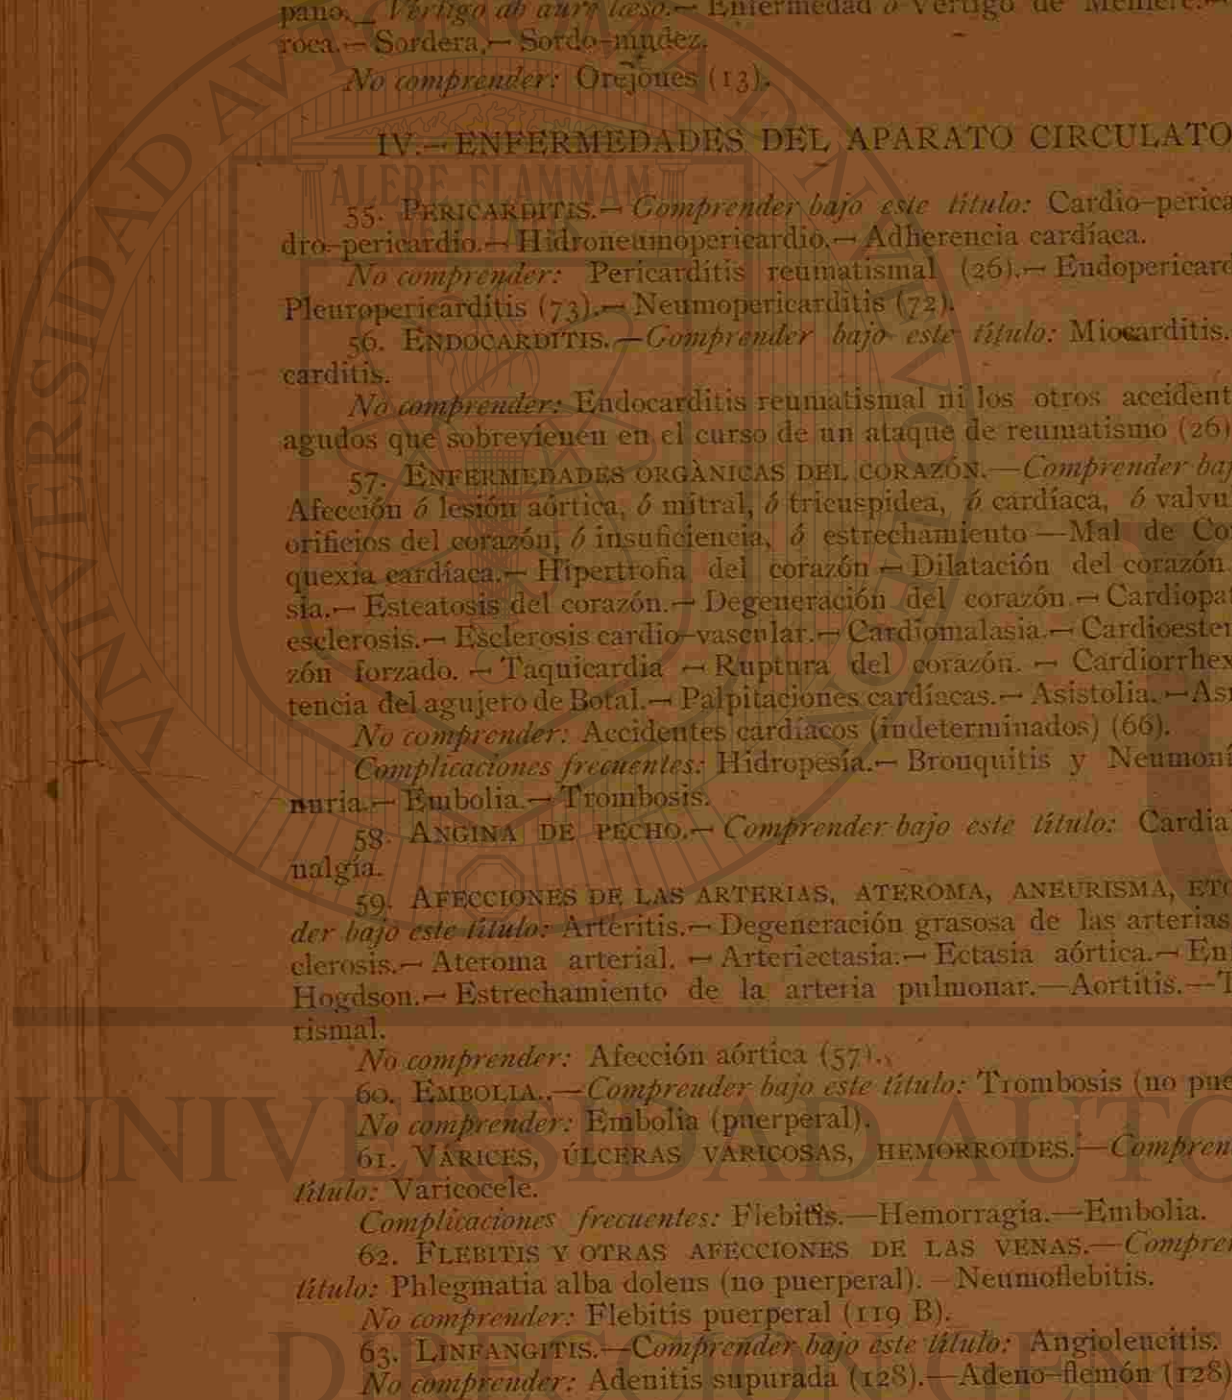 pano. Vertigo ab aure læso.— Enfermedad ó Vértigo de Meniere.—
roca.— Sordera.— Sordo-mudez.
No comprender: Orejones (13).
IV.— ENFERMEDADES DEL APARATO CIRCULATO
55. PERICARDITIS.— Comprender bajo este título: Cardio-perica
dro-pericardio.— Hidroneumopericardio.— Adherencia cardíaca.
No comprender: Pericarditis reumatismal (26).— Endopericard
Pleuropericarditis (73).— Neumopericarditis (72).
56. ENDOCARDITIS.—Comprender bajo este título: Miocarditis.
carditis.
No comprender: Endocarditis reumatismal ni los otros accident
agudos que sobrevienen en el curso de un ataque de reumatismo (26)
57. ENFERMEDADES ORGÀNICAS DEL CORAZÓN.—Comprender baj
Afección ó lesión aórtica, ó mitral, ó tricuspidea, ó cardíaca, ó valvu
orificios del corazón, ó insuficiencia, ó estrechamiento —Mal de Co
quexia cardíaca.— Hipertrofia del corazón — Dilatación del corazón.
sia.— Esteatosis del corazón.— Degeneración del corazón — Cardiopat
esclerosis.— Esclerosis cardio-vascular.— Cardiomalasia.— Cardioester
zón forzado. — Taquicardia — Ruptura del corazón. — Cardiorrhex
tencia del agujero de Botal.— Palpitaciones cardíacas.— Asistolia.—As
No comprender: Accidentes cardíacos (indeterminados) (66).
Complicaciones frecuentes: Hidropesía.— Bronquitis y Neumoní
nuria.— Embolia.— Trombosis.
58. ANGINA DE PECHO.— Comprender bajo este título: Cardia
nalgía.
59. AFECCIONES DE LAS ARTERIAS, ATEROMA, ANEURISMA, ETC
der bajo este título: Arteritis.— Degeneración grasosa de las arterias
clerosis.— Ateroma arterial. — Arteriectasia.— Ectasia aórtica.— En
Hogdson.— Estrechamiento de la arteria pulmonar.—Aortitis.—T
rismal.
No comprender: Afección aórtica (57).
60. EMBOLIA..—Comprender bajo este título: Trombosis (no pue
No comprender: Embolia (puerperal).
61. VÁRICES, ÚLCERAS VARICOSAS, HEMORROIDES.—Compren
título: Varicocele.
Complicaciones frecuentes: Flebitis.—Hemorragia.—Embolia.
62. FLEBITIS Y OTRAS AFECCIONES DE LAS VENAS.—Compre
título: Phlegmatia alba dolens (no puerperal). — Neumoflebitis.
No comprender: Flebitis puerperal (119 B).
63. LINFANGITIS.—Comprender bajo este título: Angioleucitis.
No comprender: Adenitis supurada (128).—Adeno-flemón (128)
UNIVERSIDAD AUTÓNOMA DE NUEVO
ALERE FLAMMAM
VERITATIS
UNIVERSIDAD AUTO
DIRECCIÓN GEN